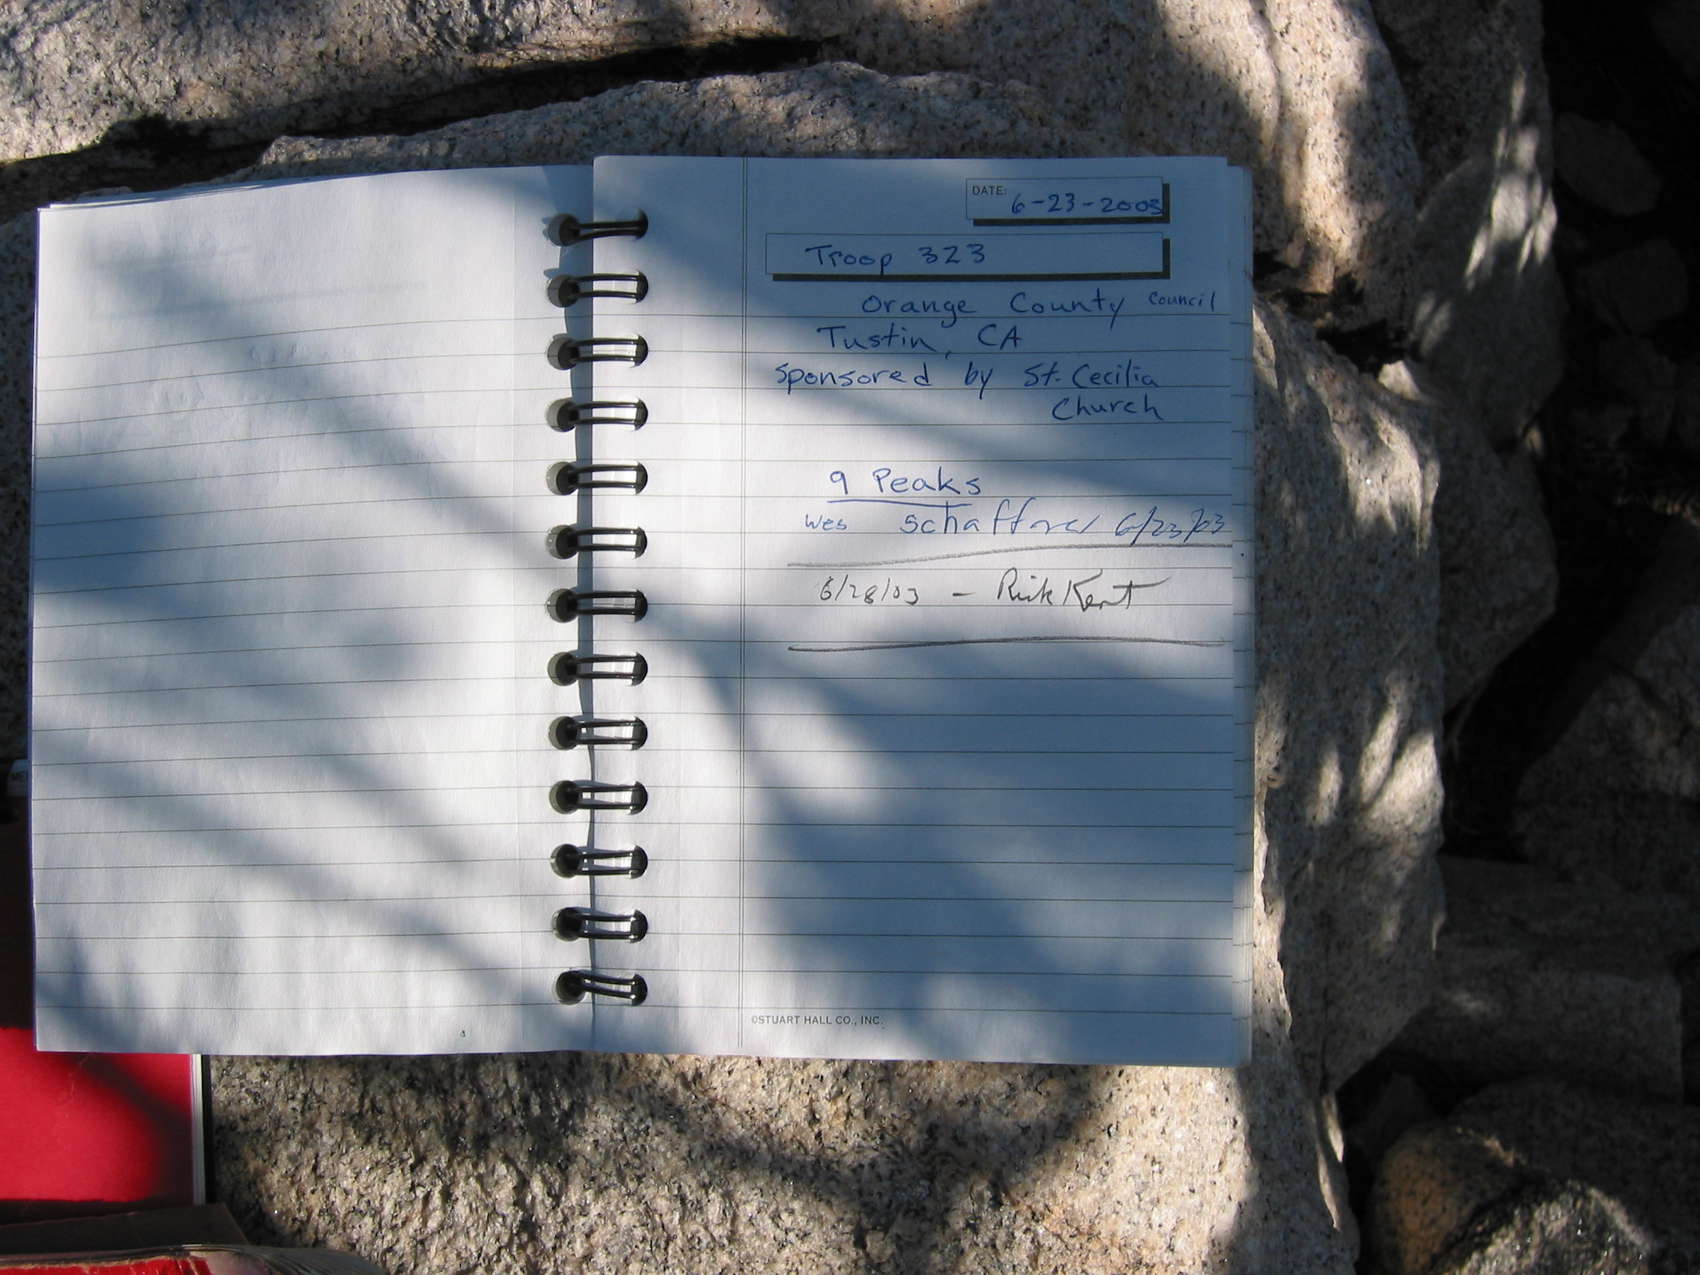 DATE: 6-23-2003
Troop 323
Orange County Council
Tustin, CA
Sponsored by St. Cecilia
Church
9 Peaks
Wes 6/23/03
6/28/03 - Rick Kent
©STUART HALL CO., INC.